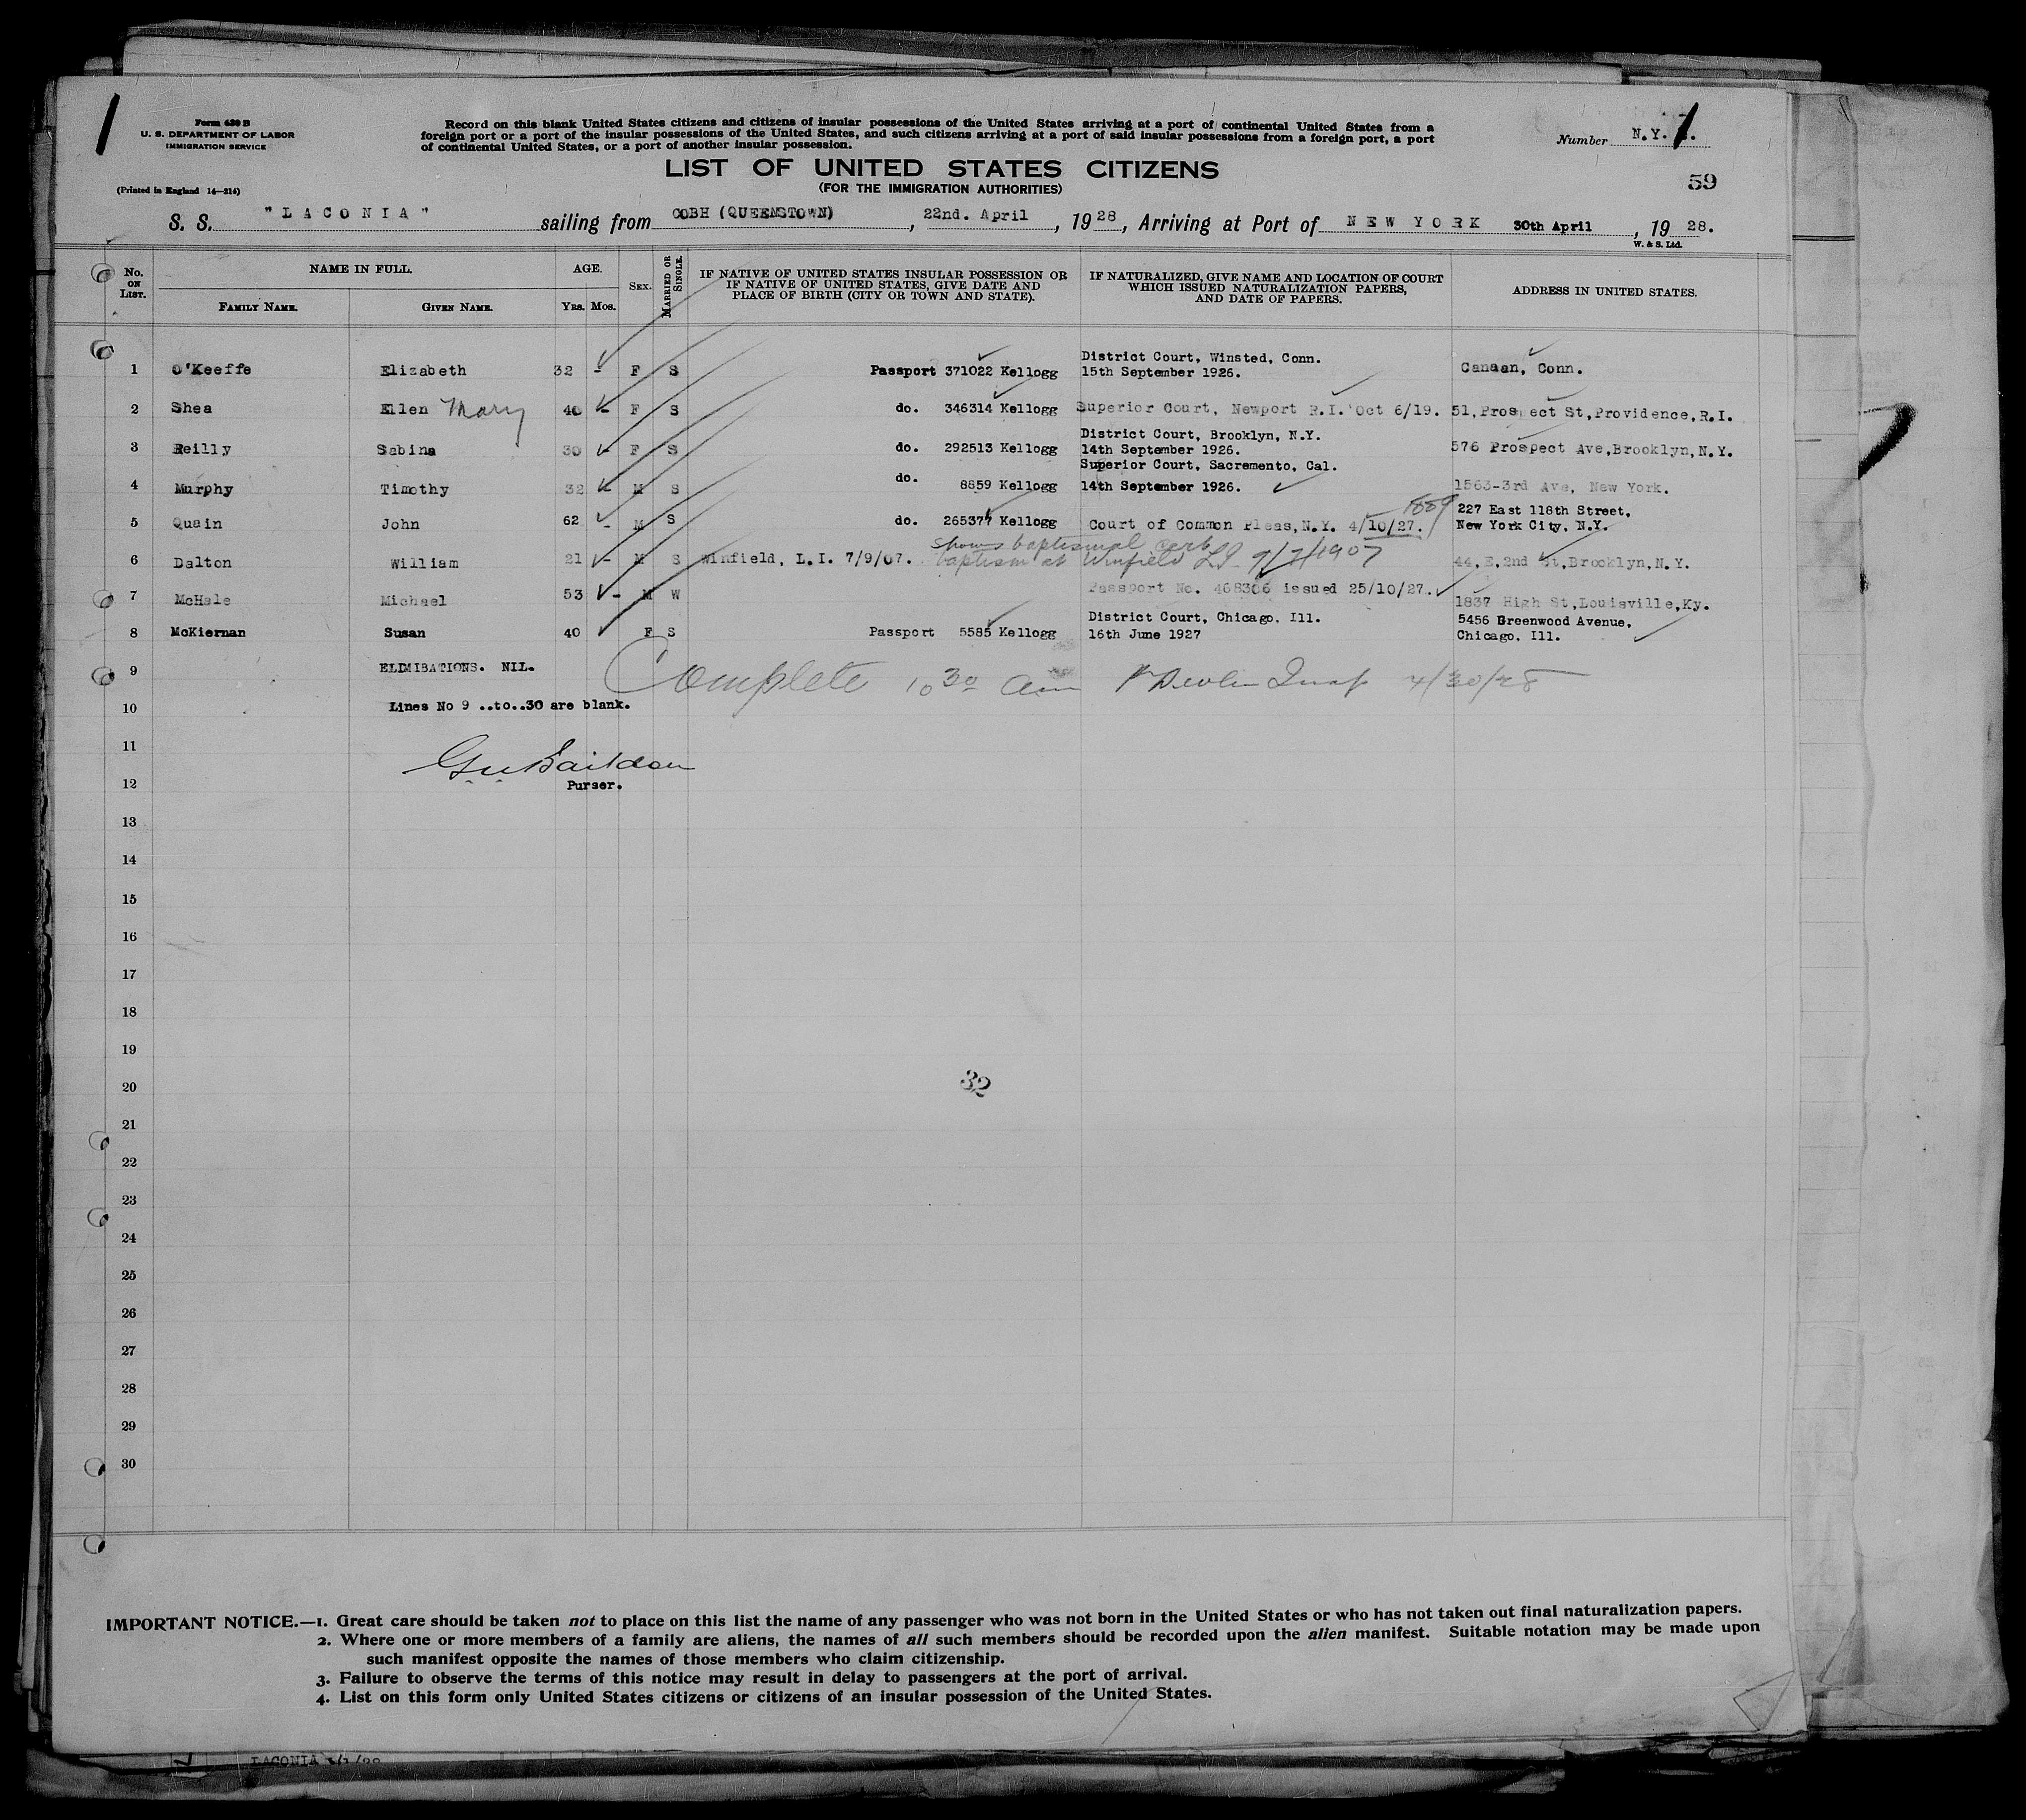 Form 630 B
U. S. DEPARTMENT OF LABOR
IMMIGRATION SERVICE
(Printed in England 14—214)
Record on this blank United States citizens and citizens of insular possessions of the United States arriving at a port of continental United States from a
foreign port or a port of the insular possessions of the United States, and such citizens arriving at a port of said insular possessions from a foreign port, a port
of continental United States, or a port of another insular possession.
Number N.Y. 1.
LIST OF UNITED STATES CITIZENS
(FOR THE IMMIGRATION AUTHORITIES)
59
S. S. "LACONIA" sailing from COBH (QUEENSTOWN), 22nd. April, 1928, Arriving at Port of NEW YORK 30th April, 1928.
W. & S. Ltd.
No. ON LIST. NAME IN FULL. AGE. SEX. MARRIED OR SINGLE. IF NATIVE OF UNITED STATES INSULAR POSSESSION OR IF NATIVE OF UNITED STATES, GIVE DATE AND PLACE OF BIRTH (CITY OR TOWN AND STATE). IF NATURALIZED, GIVE NAME AND LOCATION OF COURT WHICH ISSUED NATURALIZATION PAPERS, AND DATE OF PAPERS. ADDRESS IN UNITED STATES.
FAMILY NAME. GIVEN NAME. YRS. MOS.
1 O'Keeffe Elizabeth 32 - F S Passport 371022 Kellogg District Court, Winsted, Conn. 15th September 1926. Canaan, Conn.
2 Shea Ellen Mary 40 - F S do. 346314 Kellogg Superior Court, Newport R.I. Oct 6/19. 51,Prospect St,Providence,R.I.
3 Reilly Sabina 30 - F S do. 292513 Kellogg District Court, Brooklyn, N.Y. 14th September 1926. 576 Prospect Ave,Brooklyn,N.Y.
4 Murphy Timothy 32 - M S do. 8859 Kellogg Superior Court, Sacremento, Cal. 14th September 1926. 1563-3rd Ave, New York.
5 Quain John 62 - M S do. 265377 Kellogg Court of Common Pleas,N.Y. 4/10/27. 1889 227 East 118th Street, New York City, N.Y.
shows baptismal cert
6 Dalton William 21 - M S Winfield, L.I. 7/9/07. baptism at Winfield LI 9/7/1907 44,E,2nd St,Brooklyn,N.Y.
7 McHale Michael 53 - M W Passport No. 468306 issued 25/10/27. 1837 High St,Louisville,Ky.
8 McKiernan Susan 40 F S Passport 5585 Kellogg District Court, Chicago, Ill. 16th June 1927 5456 Greenwood Avenue, Chicago, Ill.
9 ELIMIBATIONS. NIL. Complete 10 30 am Insp 4/30/28
10 Lines No 9 ..to..30 are blank.
11
12 Purser.
13
14
15
16
17
18
19
32
20
21
22
23
24
25
26
27
28
29
30
IMPORTANT NOTICE.—1. Great care should be taken not to place on this list the name of any passenger who was not born in the United States or who has not taken out final naturalization papers.
2. Where one or more members of a family are aliens, the names of all such members should be recorded upon the alien manifest. Suitable notation may be made upon
such manifest opposite the names of those members who claim citizenship.
3. Failure to observe the terms of this notice may result in delay to passengers at the port of arrival.
4. List on this form only United States citizens or citizens of an insular possession of the United States.